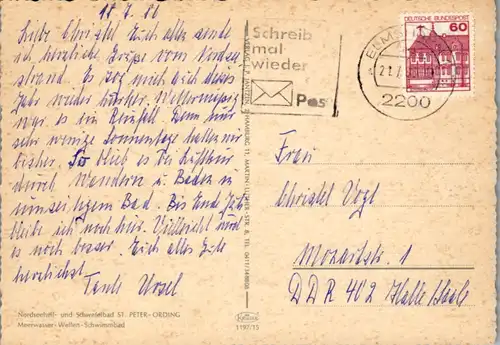 18.7.80
Liebe Christel! Euch allen sende
ich herzliche Grüße vom Nordsee-
strand. Es zog mich auch dieses
Jahr wieder hierher. Wettermäßig
war es ein Reinfall. Denn nur
sehr wenige Sonnentage hatten wir
bisher. So blieb es bei Luftkur
durch Wandern u. Baden
im Bad. Bis Ende Juli
bleibe ich noch hier. Vielleicht wird
es noch besser. Euch alles Gute
herzlichst
Tante Ursel
Nordseeheil- und Schwefelbad ST. PETER-ORDING
Meerwasser-Wellen-Schwimmbad
VERLAG J. P. JANTZEN, 2 HAMBURG 11, MARTIN-LUTHER-STR. 8, TEL. 0411/348808
1197/15
Schreib
mal
wieder
Post
2200
DEUTSCHE BUNDESPOST
60
Frau
Christel Vogt
Mozartstr. 1
DDR 402 Halle/Saale